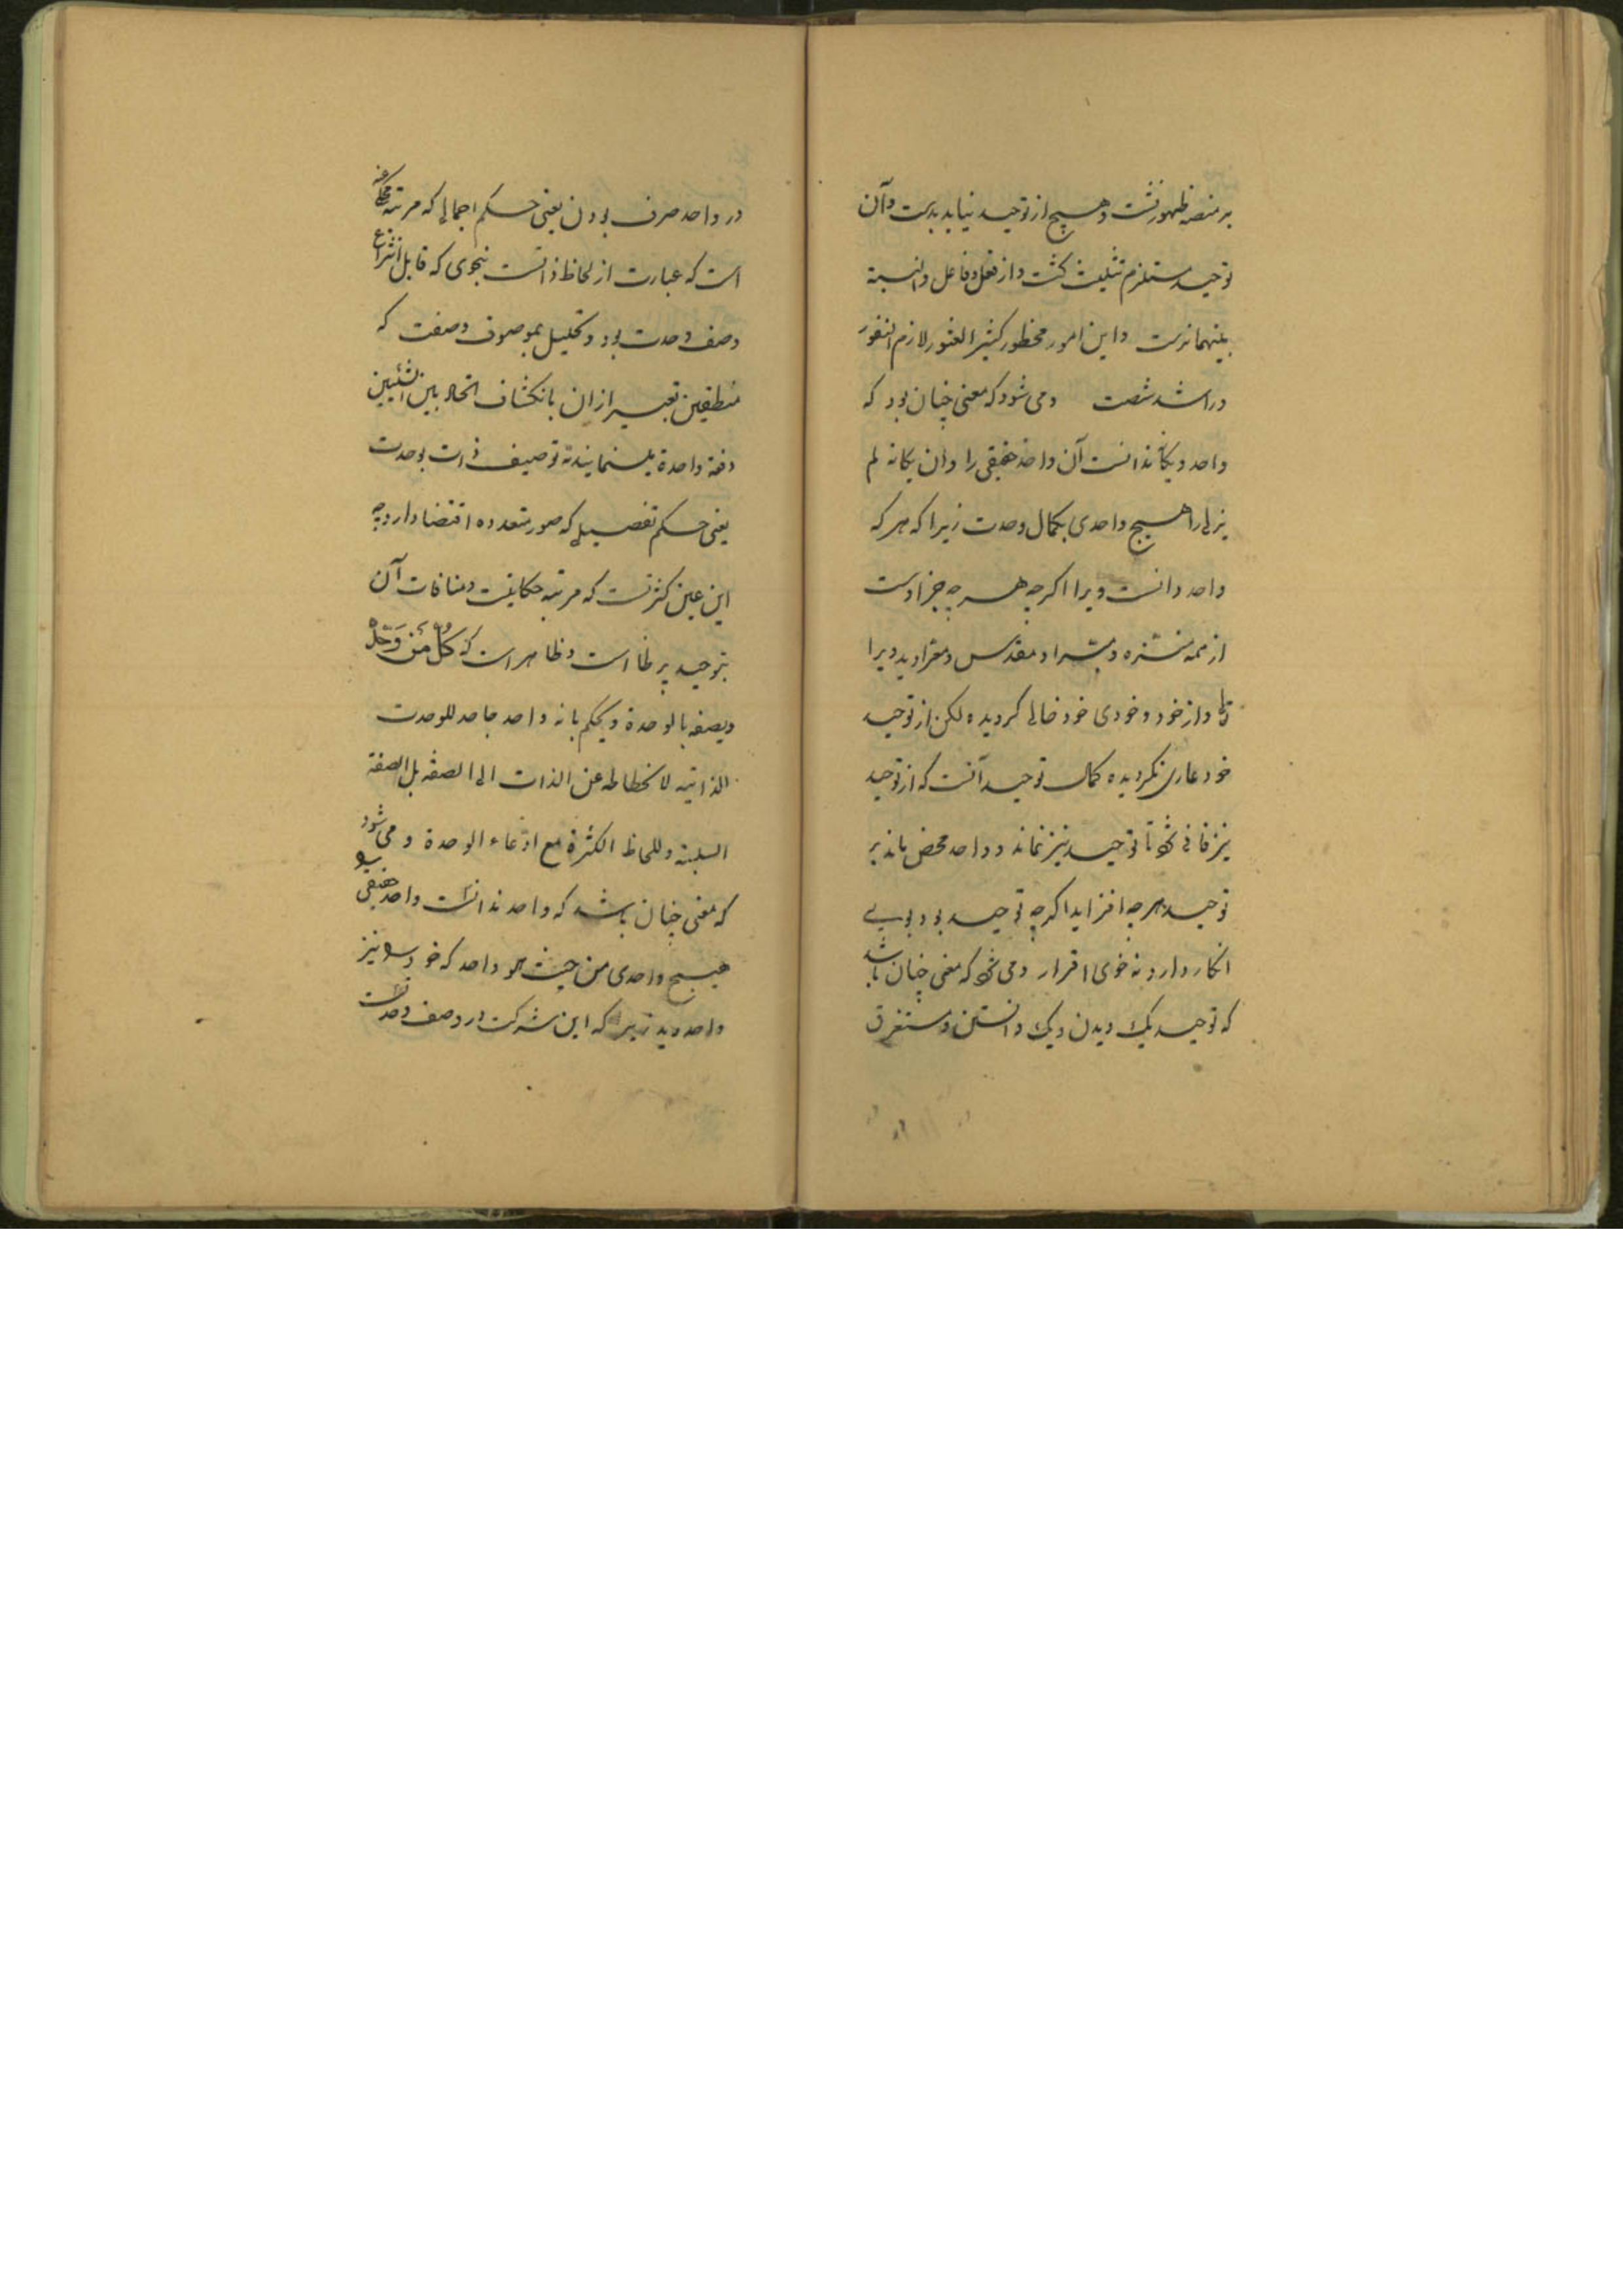 بر منصه ظهور نشست و هیچ از توحید نیاید بدست و آن
توحید مستلزم تثلیث گشت و از فعل و فاعل و النسبة
بینهما نرست و این امور محظور کثیر العثور لازم النفور
در اشد شصت و می شود که معنی چنان بود که
واحد و یگانه ندانست آن واحد حقیقی را و آن یگانه لم
یزلی را هیچ واحدی بکمال وحدت زیرا که هر که
واحد دانست ویرا اگرچه هر چه جز اوست
از همه منزه و مبرا و مقدس و معرا دید ویرا
و از خود و خودی خود خالی گردیده لکن از توحید
خود عاری نگردیده کمال توحید آنست که از توحید
نیز فانی شود تا توحید نیز نماند و واحد محض ماند بر
توحید هر چه افزاید اگرچه توحید بود بوی
انکار دارد نه خوی اقرار و می شود که معنی چنان باشد
که توحید یک دیدن و یک دانستن و مستغرق
در واحد صرف بودن یعنی حکم اجمالی که مرتبه محکی عنه
است که عبارت از لحاظ ذاتست بنحوی که قابل انتزاع
وصف وحدت بود و تحلیل بموصوف و صفت که
منطقیین تعبیر ازان بانکشاف اتحاد بین الشیئین
دفعة واحدة مینمایند نه توصیف ذات بوحدت
یعنی حکم تفصیلی که صور متعدده اقتضا دارد چه
این عین کثرتست که مرتبه حکایتست و منافات آن
بتوحید بر ملا است و ظاهر است که کُلُّ مَن وَحَّدَهُ
و یصفه بالوحدة و یحکم بانه واحد جاحد للوحدت
الذاتیه لانحطاطه عن الذات الی الصفه بل الصفة
السلبیة و للحاظ الکثرة مع ادعاء الوحدة و می شود
که معنی چنان باشد که واحد ندانست واحد حقیقی را
هیچ واحدی من حیث هو واحد که خود را نیز
واحد دید زیرا که این شرکت در وصف وحدتست